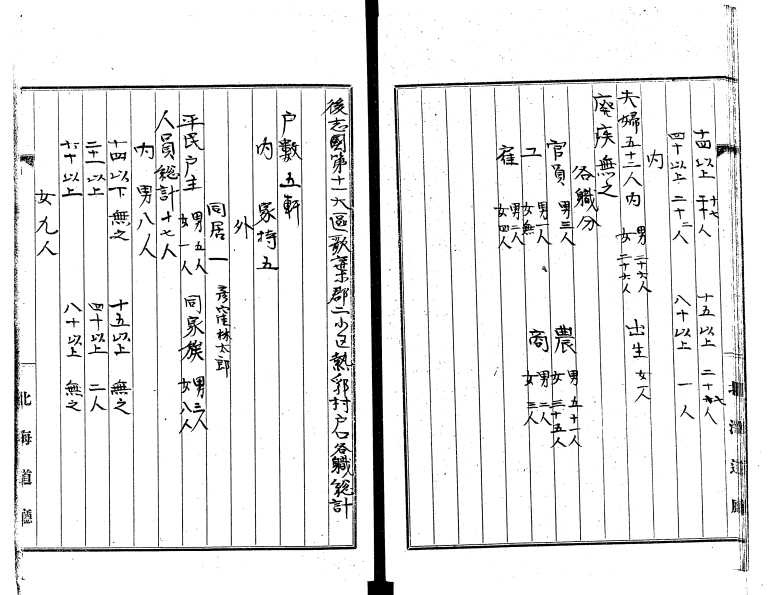 十四以上 二十七人 十五以上 二十七人
四十以上 二十二人 八十以上 一人
内
夫婦五十三人内 男二十六人 女二十六人 出生女一人
廃疾無之
各職分
官員 男三人 農 男五十一人 女三十五人
工 男一人 女無 商 男二人 女三人
雇 男二人 女四人
北海道廳
後志國第十一大區歌棄郡二小区熱郛村戸口各職総計
戸数五軒
内 家持五
外
同居一 彦窪林太郎
平民戸主 男五人 女一人 同家族 男三人 女八人
人員総計十七人
内 男八人
十四以下 無之 十五以上 無之
二十一以上 四十以上 二人
六十以上 八十以上 無之
女九人
北海道廳